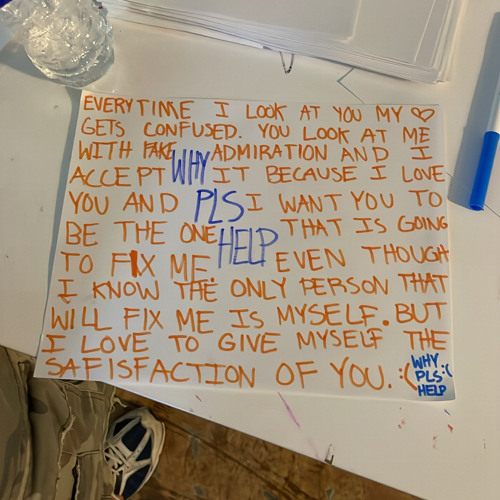 EVERYTIME I LOOK AT YOU MY ♡
GETS CONFUSED. YOU LOOK AT ME
WITH FAKE ADMIRATION AND I
ACCEPT WHY IT BECAUSE I LOVE
YOU AND PLS I WANT YOU TO
BE THE ONE HELP THAT IS GOING
TO FIX ME. EVEN THOUGH
I KNOW THE ONLY PERSON THAT
WILL FIX ME IS MYSELF. BUT
I LOVE TO GIVE MYSELF THE
SAFISFACTION OF YOU. :(
WHY
PLS :(
HELP